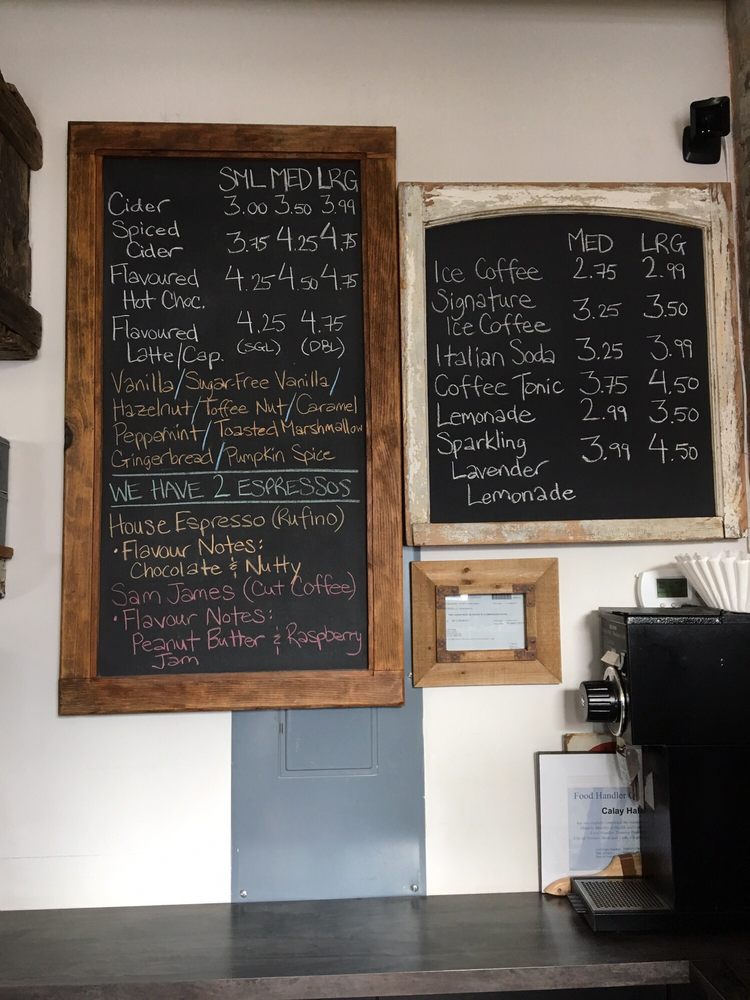 SML MED LRG
Cider 3.00 3.50 3.99
Spiced
Cider 3.75 4.25 4.75
Flavoured 4.25 4.50 4.75
Hot Choc.
Flavoured 4.25 4.75
Latte/Cap. (SGL) (DBL)
Vanilla/Sugar-Free Vanilla/
Hazelnut/Toffee Nut/Caramel
Peppermint/Toasted Marshmallow
Gingerbread/Pumpkin Spice
WE HAVE 2 ESPRESSOS
House Espresso (Rufino)
• Flavour Notes:
Chocolate & Nutty
Sam James (Cut Coffee)
• Flavour Notes:
Peanut Butter & Raspberry
Jam
MED LRG
Ice Coffee 2.75 2.99
Signature 3.25 3.50
Ice Coffee
Italian Soda 3.25 3.99
Coffee Tonic 3.75 4.50
Lemonade 2.99 3.50
Sparkling 3.99 4.50
Lavender
Lemonade
Food Handler
Calay